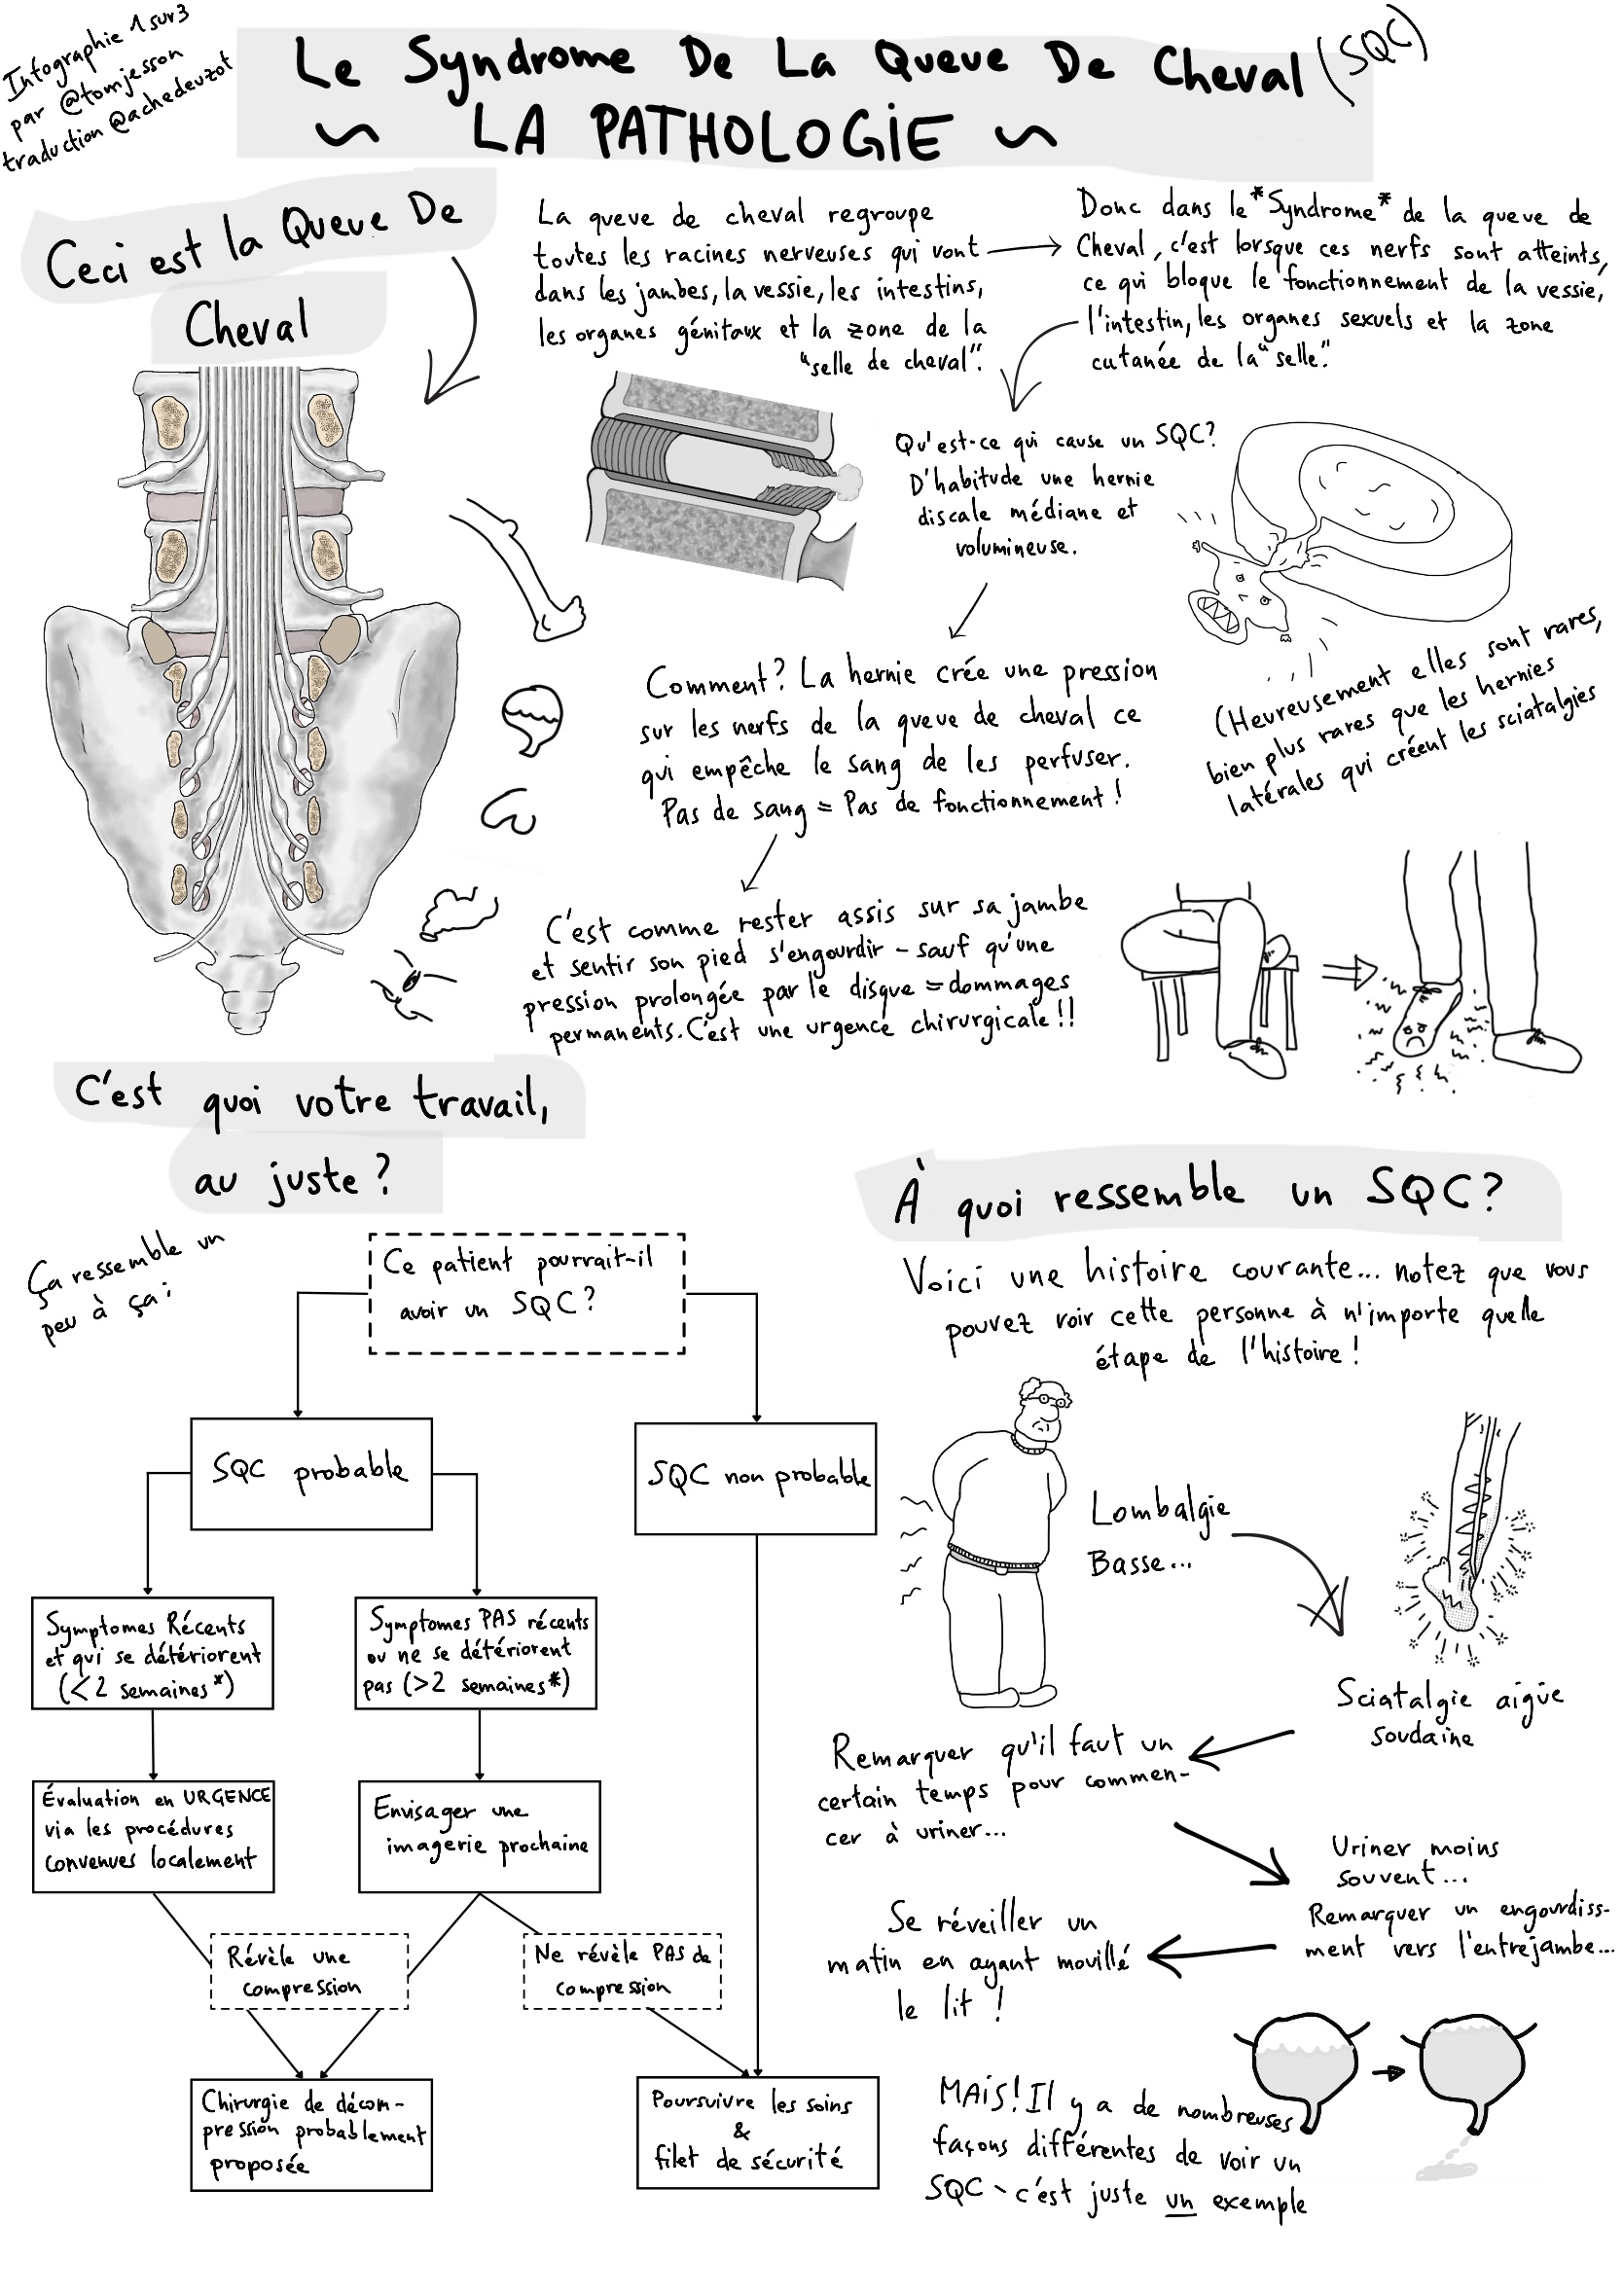 Infographie 1 sur 3
par @tomjesson
traduction @achedeuzot
Le Syndrome De La Queue De Cheval (SQC)
~ LA PATHOLOGIE ~
Ceci est la Queue De
Cheval
La queue de cheval regroupe
toutes les racines nerveuses qui vont
dans les jambes, la vessie, les intestins,
les organes génitaux et la zone de la
"selle de cheval".
Donc dans le *Syndrome* de la queue de
Cheval, c'est lorsque ces nerfs sont atteints,
ce qui bloque le fonctionnement de la vessie,
l'intestin, les organes sexuels et la zone
cutanée de la "selle".
Qu'est-ce qui cause un SQC?
D'habitude une hernie
discale médiane et
volumineuse.
(Heureusement elles sont rares,
bien plus rares que les hernies
latérales qui créent les sciatalgies
Comment? La hernie crée une pression
sur les nerfs de la queue de cheval ce
qui empêche le sang de les perfuser.
Pas de sang = Pas de fonctionnement!
C'est comme rester assis sur sa jambe
et sentir son pied s'engourdir - sauf qu'une
pression prolongée par le disque = dommages
permanents. C'est une urgence chirurgicale!!
C'est quoi votre travail,
au juste?
Ça ressemble un
peu à ça:
Ce patient pourrait-il
avoir un SQC?
SQC probable
SQC non probable
Symptomes Récents
et qui se détériorent
(<2 semaines*)
Symptomes PAS récents
ou ne se détériorent
pas (>2 semaines*)
Évaluation en URGENCE
via les procédures
convenues localement
Envisager une
imagerie prochaine
Révèle une
compression
Ne révèle PAS de
compression
Chirurgie de décom-
pression probablement
proposée
Poursuivre les soins
&
filet de sécurité
À quoi ressemble un SQC?
Voici une histoire courante... notez que vous
pouvez voir cette personne à n'importe quelle
étape de l'histoire!
Lombalgie
Basse...
Sciatalgie aigüe
soudaine
Remarquer qu'il faut un
certain temps pour commen-
cer à uriner...
Uriner moins
souvent...
Remarquer un engourdiss-
ment vers l'entrejambe...
Se réveiller un
matin en ayant mouillé
le lit!
MAIS! Il y a de nombreuses
façons différentes de voir un
SQC - c'est juste un exemple